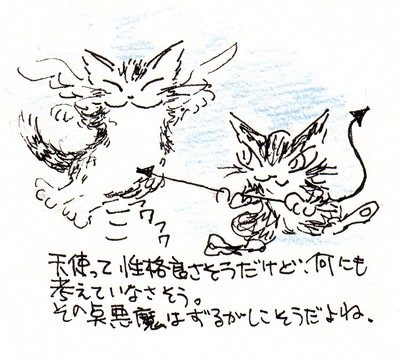 フワフワ
天使って性格良さそうだけど、何にも
考えていなさそう。
その点悪魔はずるがしこそうだよね。